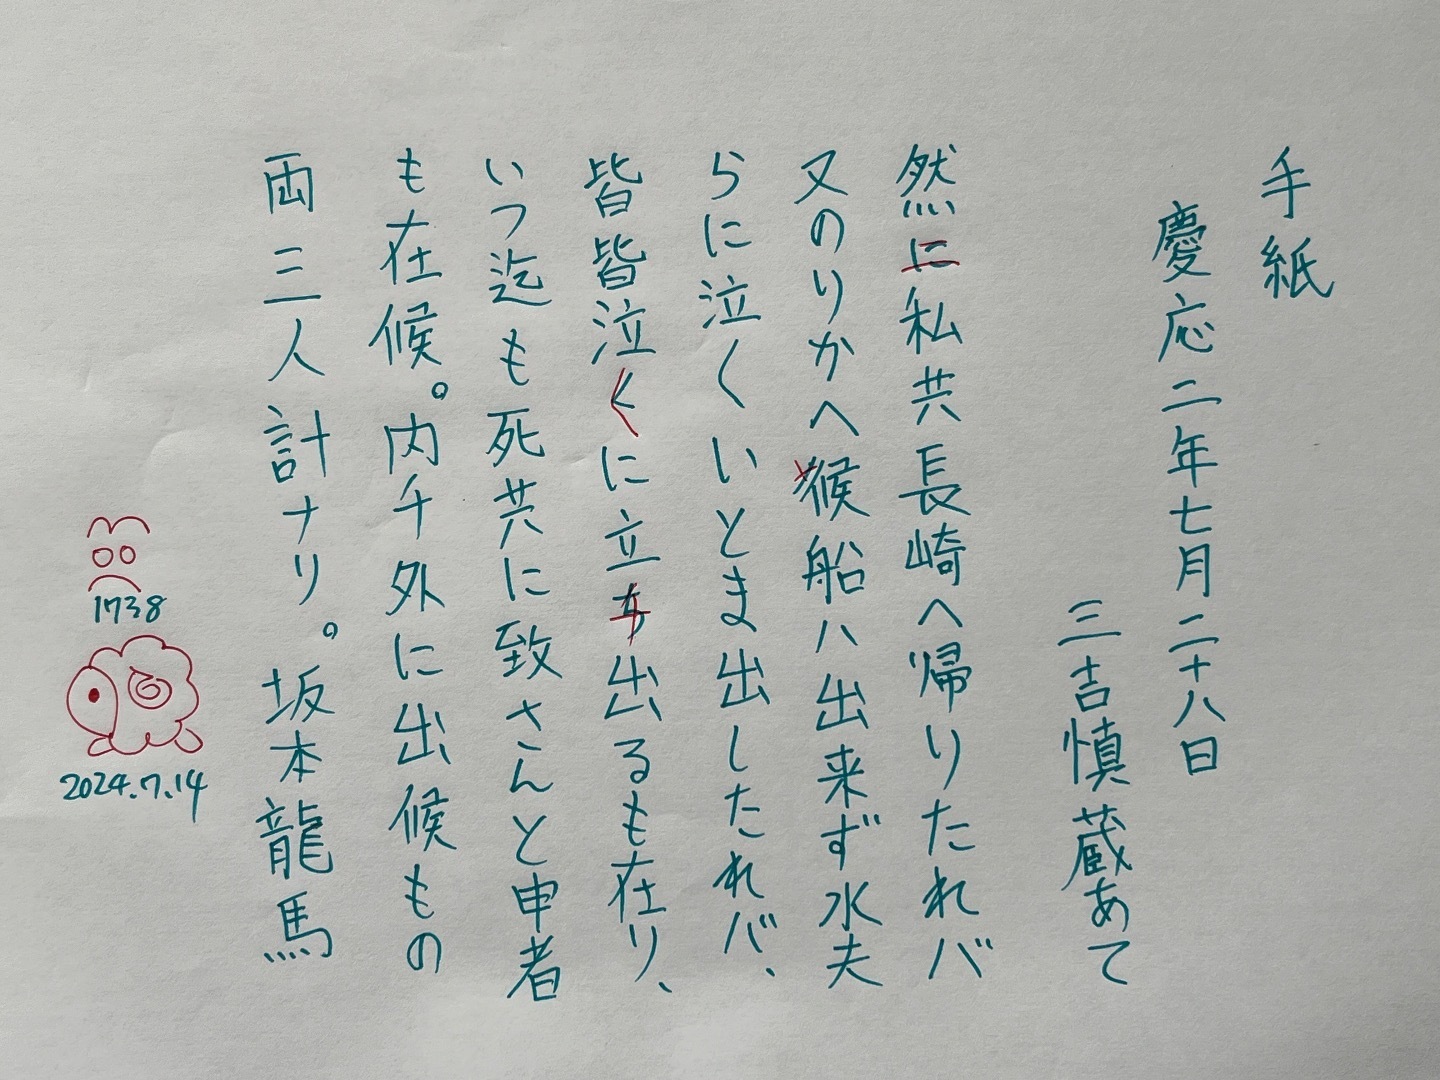 手紙
慶応二年七月二十八日
三吉慎蔵あて
然に私共長崎へ帰りたれバ
又のりかへ候船ハ出来ず水夫
らに泣くいとま出したれバ、
皆皆泣くに立ち出るも在り、
いつ迄も死共に致さんと申者
も在候。内千外に出候もの
両三人計ナリ。坂本龍馬
1738
2024.7.14